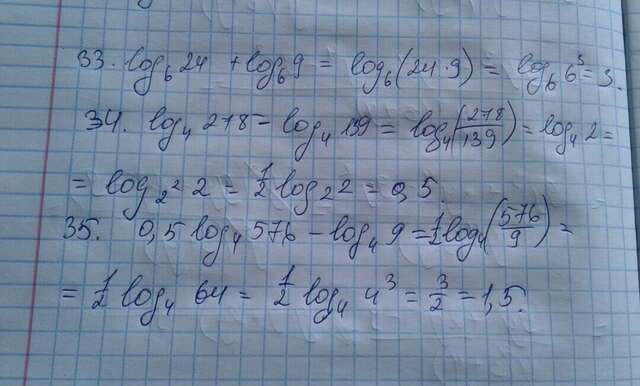 33. log₆ 24 + log₆ 9 = log₆ (24·9) = log₆ 6³ = 3.
34. log₄ 278 - log₄ 139 = log₄ (278/139) = log₄ 2 =
= log₂² 2 = 1/2 log₂ 2 = 0,5.
35. 0,5 log₄ 576 - log₄ 9 = 1/2 log₄ (576/9) =
= 1/2 log₄ 64 = 1/2 log₄ 4³ = 3/2 = 1,5.